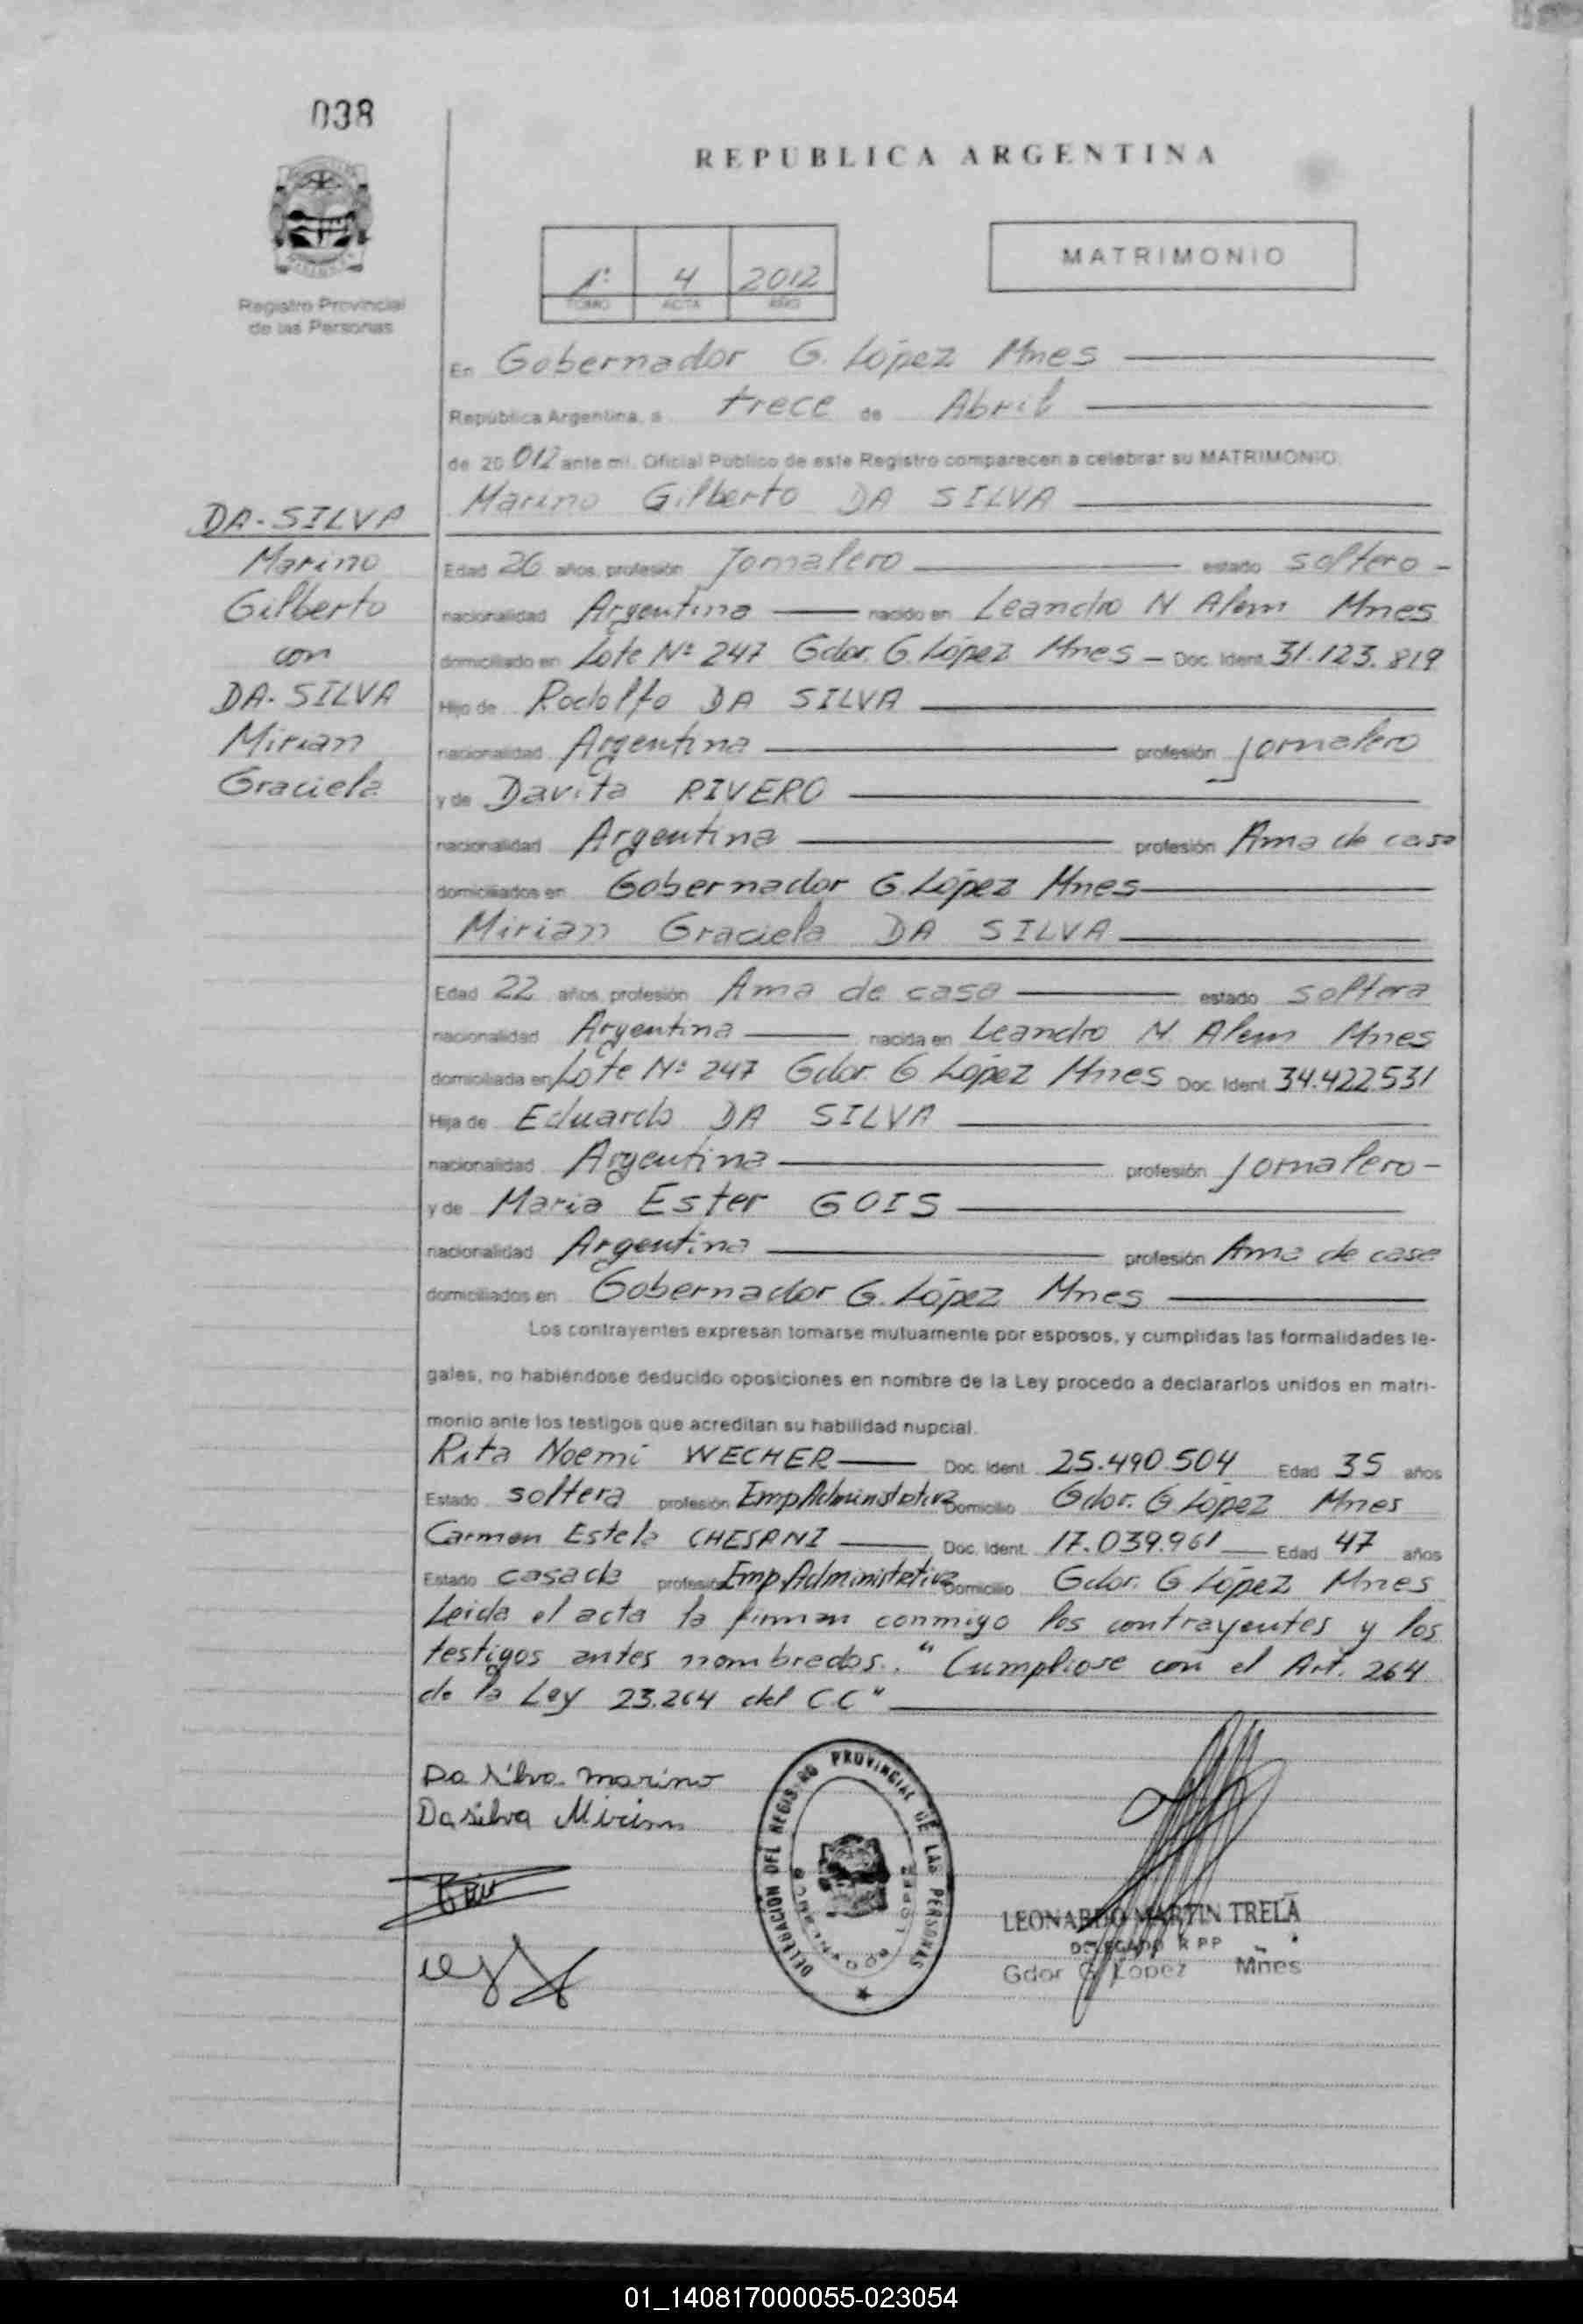 038
REPUBLICA ARGENTINA
MATRIMONIO
1º 4 2012
TOMO ACTA AÑO
Registro Provincial
de las Personas
En Gobernador G. López Mnes
República Argentina, a trece de Abril
de 20 012 ante mi, Oficial Público de este Registro comparecen a celebrar su MATRIMONIO
Marino Gilberto DA SILVA
DA-SILVA
Marino
Gilberto
con
DA-SILVA
Mirian
Graciela
Edad 26 años, profesión Jornalero estado soltero -
nacionalidad Argentina nacido en Leandro N Alem Mnes
domiciliado en Lote Nº 247 Gdor. G. López Mnes - Doc. Ident. 31.123.819
Hijo de Rodolfo DA SILVA
nacionalidad Argentina profesión Jornalero
y de Davita RIVERO
nacionalidad Argentina profesión Ama de casa
domiciliados en Gobernador G. López Mnes
Mirian Graciela DA SILVA
Edad 22 años, profesión Ama de casa estado soltera
nacionalidad Argentina nacida en Leandro N. Alem Mnes
domiciliada en Lote Nº 247 Gdor. G López Mnes Doc. Ident. 34.422.531
Hija de Eduardo DA SILVA
nacionalidad Argentina profesión Jornalero -
y de Maria Ester GOIS
nacionalidad Argentina profesión Ama de casa
domiciliados en Gobernador G. López Mnes
Los contrayentes expresan tomarse mutuamente por esposos, y cumplidas las formalidades le-
gales, no habiéndose deducido oposiciones en nombre de la Ley procedo a declararlos unidos en matri-
monio ante los testigos que acreditan su habilidad nupcial.
Rita Noemi WECHER Doc. Ident. 25.490.504 Edad 35 años
Estado soltera profesión Emp Administrativa Domicilio Gdor. G López Mnes
Carmen Estela CHESANI Doc. Ident. 17.039.961 Edad 47 años
Estado casada profesión Emp Administrativa Domicilio Gdor. G López Mnes
Leida el acta la firman conmigo los contrayentes y los
testigos antes nombrados. "Cumpliose con el Art. 264
de la Ley 23.264 del C.C"
Da Silva marino
Da silva Mirian
DELEGACION DEL REGISTRO PROVINCIAL DE LAS PERSONAS
GOBERNADOR LOPEZ
LEONARDO MARTIN TRELA
DELEGADO R P P
Gdor G Lopez Mnes
01_140817000055-023054